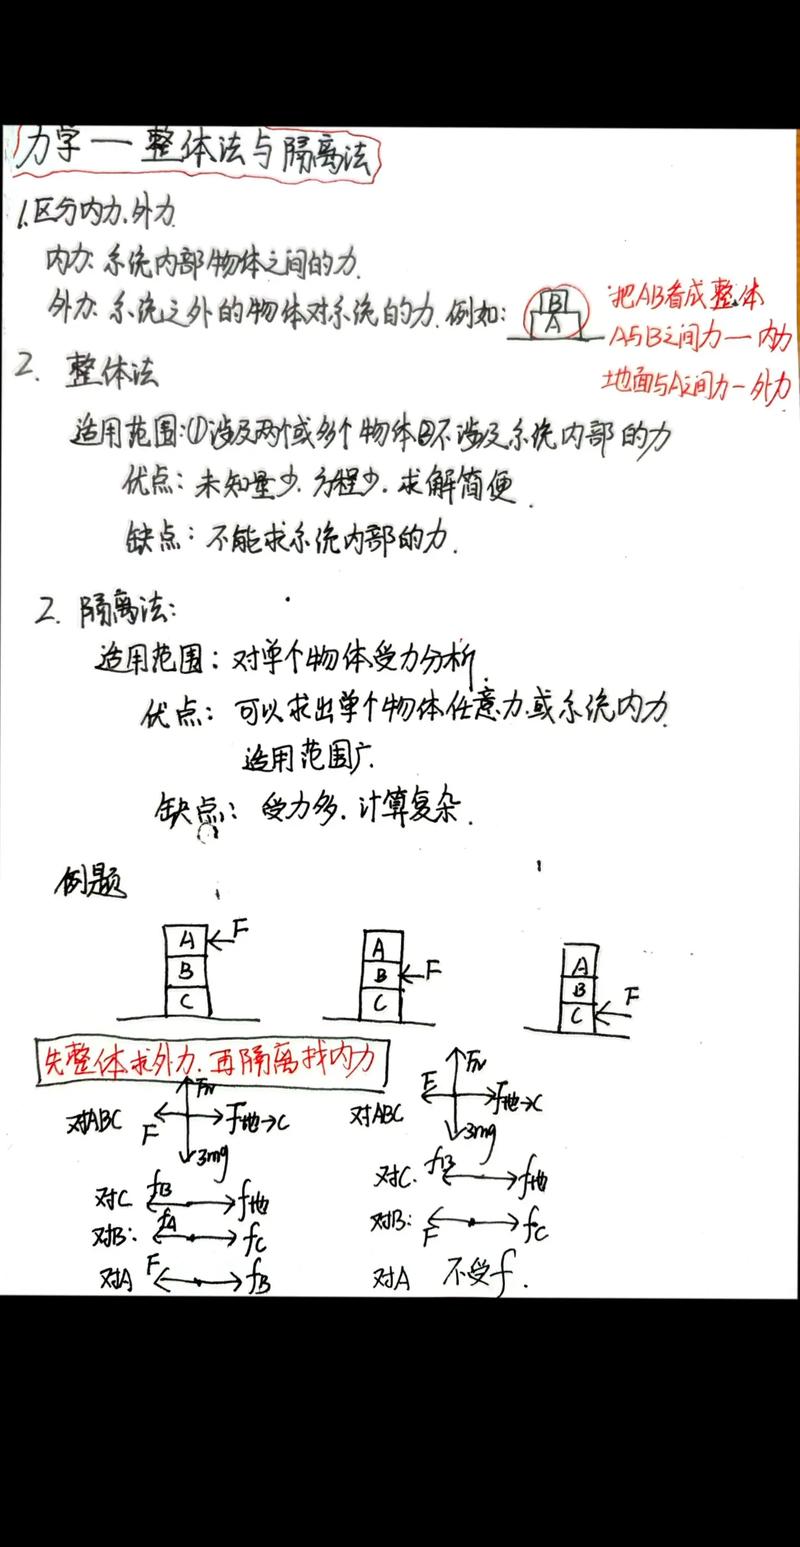 力学一整体法与隔离法
1.区分内力、外力.
内力: 系统内部物体之间的力.
外力: 系统之外的物体对系统的力. 例如:
B
A
把AB看成整体
A与B之间力一内力
地面与A之间力-外力
2. 整体法
适用范围:①涉及两个或多个物体②不涉及系统内部的力
优点: 未知量少. 方程少. 求解简便.
缺点: 不能求系统内部的力.
2. 隔离法:
适用范围: 对单个物体受力分析.
优点: 可以求出单个物体任意力.或系统内力.
适用范围广.
缺点: 受力多. 计算复杂.
例题
A F
B
C
A
B F
C
A
B
C F
先整体求外力.再隔离找内力
对ABC FN F f地→C 3mg
对C fB f地
对B: fA fC
对A F fB
对ABC FN F f地→C 3mg
对C. fB f地
对B: F fC
对A 不受f.